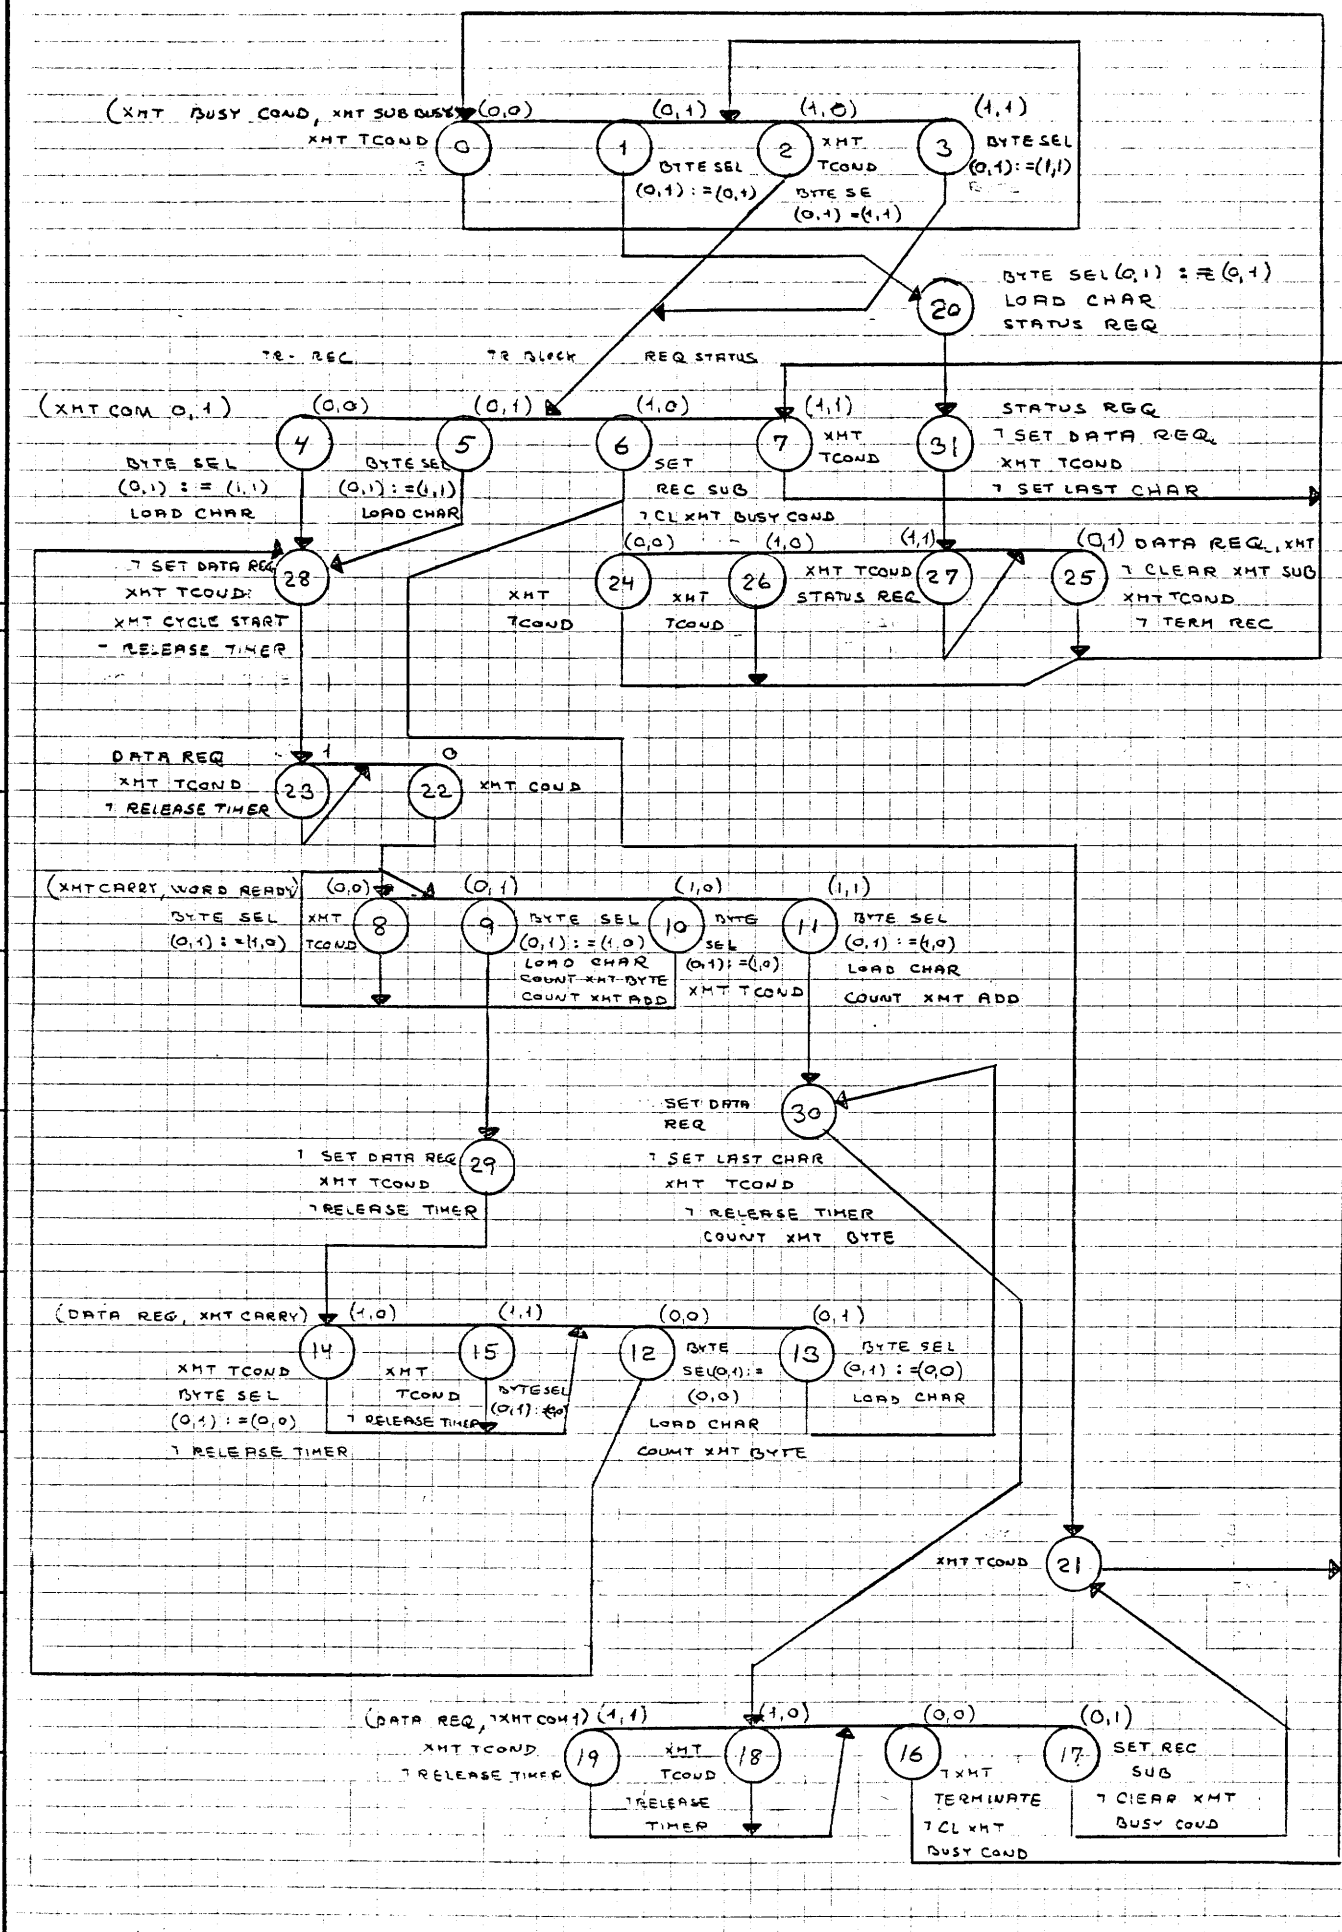 (XMT BUSY COND, XMT SUB BUSY) (0,0) (0,1) (1,0) (1,1)
XMT TCOND 0
1 BYTE SEL
(0,1) := (0,1)
2 XMT
TCOND
BYTE SE
(0,1) = (1,1)
3 BYTE SEL
(0,1) := (1,1)
20 BYTE SEL (0,1) := (0,1)
LOAD CHAR
STATUS REQ
TR- REC TR BLOCK REQ STATUS
(XMT COM 0, 1) (0,0) (0,1) (1,0) (1,1)
4
BYTE SEL
(0,1) := (1,1)
LOAD CHAR
5
BYTE SEL
(0,1) := (1,1)
LOAD CHAR
6
SET
REC SUB
7 CL XMT BUSY COND
7 XMT
TCOND
31 STATUS REQ
7 SET DATA REQ
XMT TCOND
7 SET LAST CHAR
28
7 SET DATA REQ
XMT TCOND
XMT CYCLE START
- RELEASE TIMER
(0,0) (1,0) (1,1) (0,1) DATA REQ, XMT
24 XMT
TCOND
26 XMT
TCOND
27 XMT TCOND
STATUS REQ
25 7 CLEAR XMT SUB
XMT TCOND
7 TERM REC
DATA REQ 1 0
23 XMT TCOND
7 RELEASE TIMER
22 XMT COND
(XMT CARRY, WORD READY) (0,0) (0,1) (1,0) (1,1)
BYTE SEL
(0,1) := (1,0)
XMT
TCOND
8
9 BYTE SEL
(0,1) := (1,0)
LOAD CHAR
COUNT XMT BYTE
COUNT XMT ADD
10 BYTE
SEL
(0,1) := (1,0)
XMT TCOND
11 BYTE SEL
(0,1) := (1,0)
LOAD CHAR
COUNT XMT ADD
SET DATA
REQ
30
7 SET LAST CHAR
XMT TCOND
7 RELEASE TIMER
COUNT XMT BYTE
7 SET DATA REQ 29
XMT TCOND
7 RELEASE TIMER
(DATA REQ, XMT CARRY) (1,0) (1,1) (0,0) (0,1)
14
XMT TCOND
BYTE SEL
(0,1) := (0,0)
7 RELEASE TIMER
15
XMT
TCOND
BYTE SEL
7 RELEASE TIMER
12 BYTE
SEL (0,1) :=
(0,0)
LOAD CHAR
COUNT XMT BYTE
13 BYTE SEL
(0,1) := (0,0)
LOAD CHAR
XMT TCOND 21
(DATA REQ, 7XMT COM 1) (1,1) (1,0) (0,0) (0,1)
XMT TCOND 19
7 RELEASE TIMER
XMT 18
TCOND
7 RELEASE
TIMER
16
7 XMT
TERMINATE
7 CL XMT
BUSY COND
17 SET REC
SUB
7 CLEAR XMT
BUSY COND